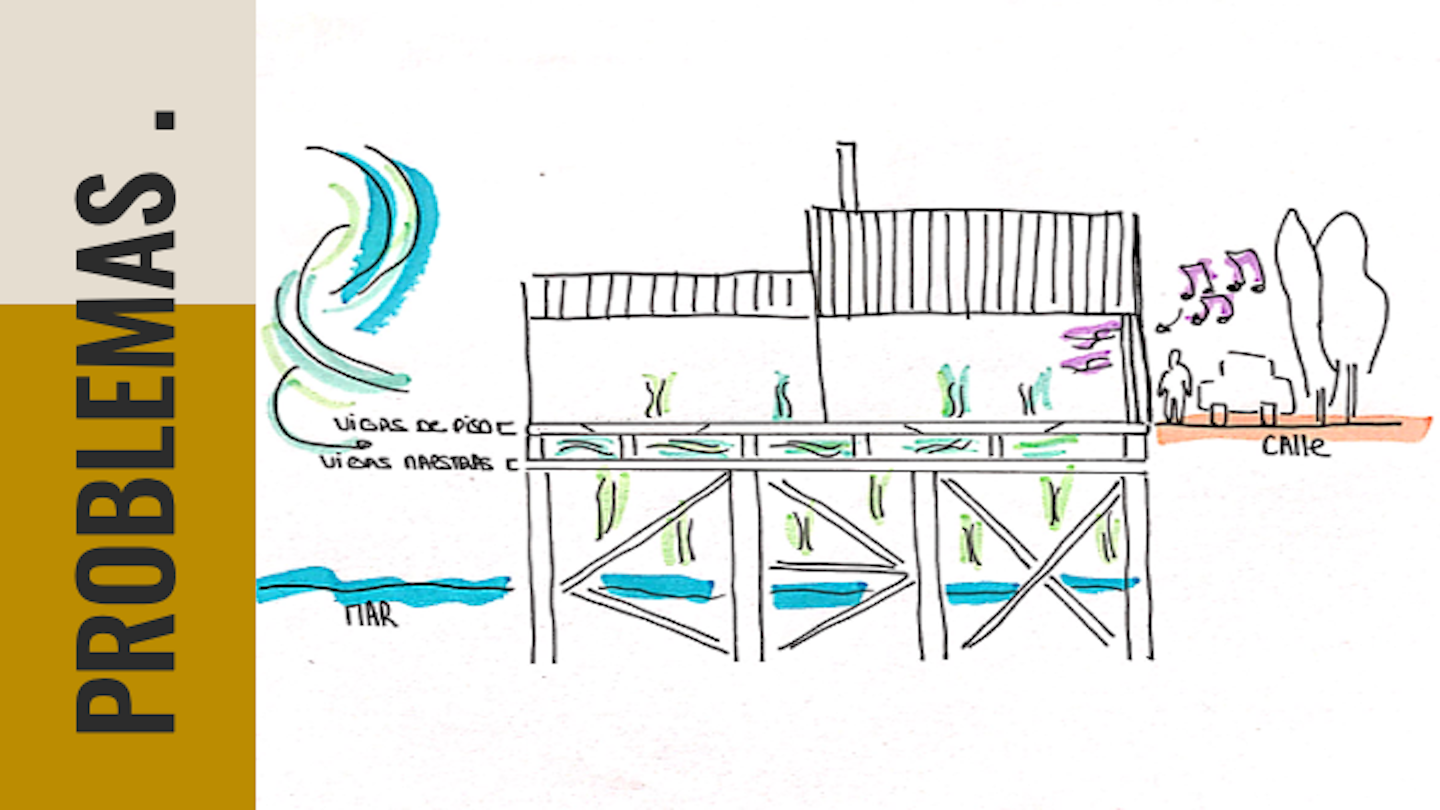 PROBLEMAS .
VIGAS DE PISO
VIGAS MAESTRAS
MAR
CALLE